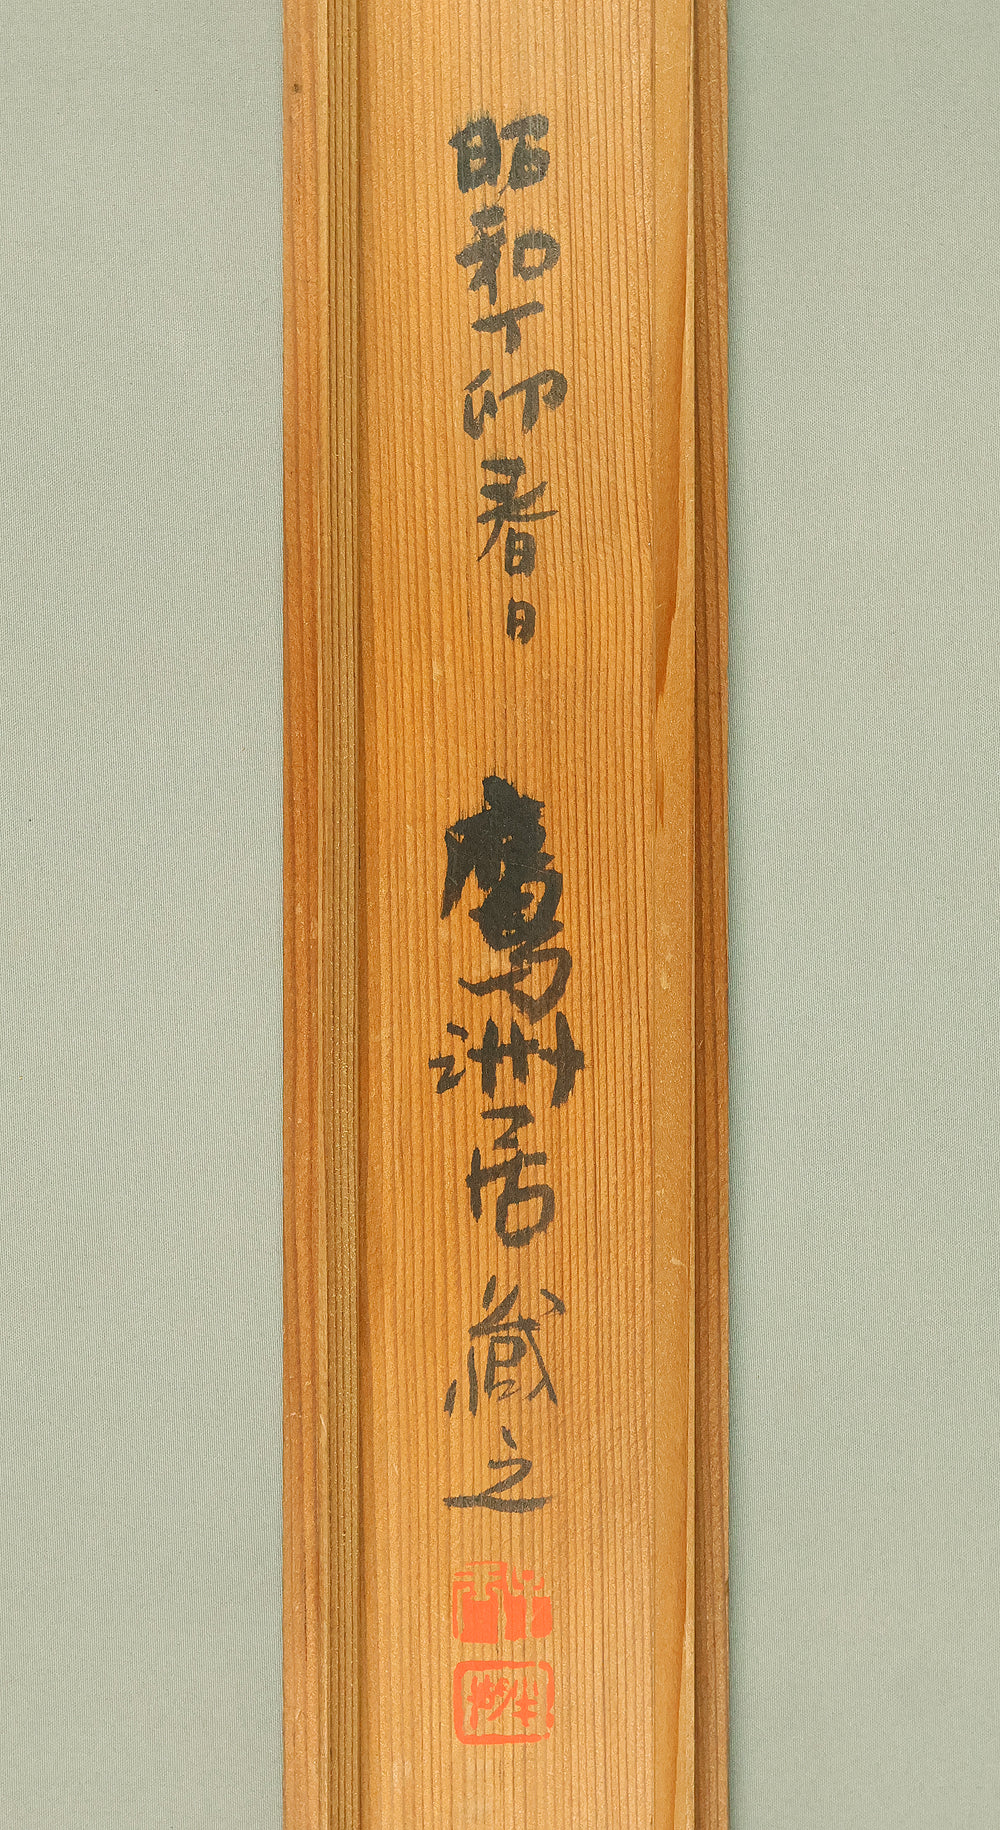 昭和丁卯春日
鷹洲居蔵之